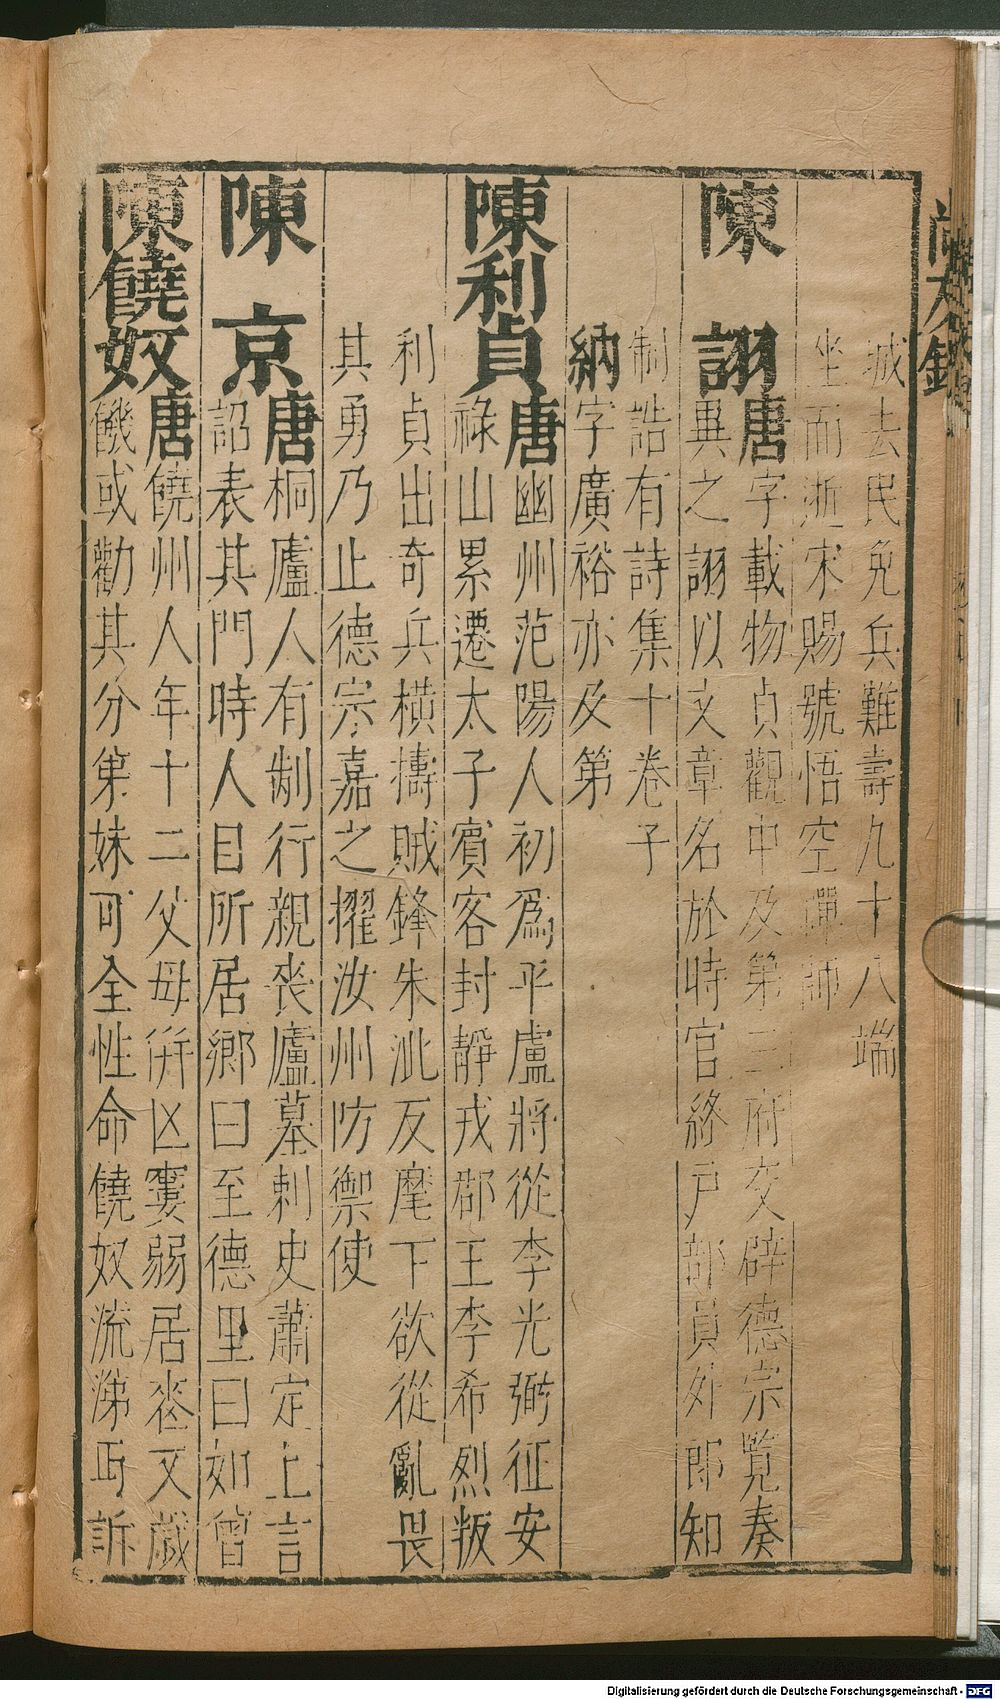 城去民免兵難壽九十八端
坐而逝宋賜號悟空禪師
陳 詡唐字載物貞觀中及第三府交辟德宗覽奏
異之詡以文章名於時官終戸部員外郎知
制誥有詩集十卷子
納字廣裕亦及第
陳利貞唐幽州范陽人初爲平盧將從李光弼征安
祿山累遷太子賓客封靜戎郡王李希烈叛
利貞出奇兵橫擣賊鋒朱泚反麾下欲從亂畏
其勇乃止德宗嘉之擢汝州防禦使
陳 京唐桐廬人有制行親喪廬墓刺史蕭定上言
詔表其門時人目所居鄉曰至德里曰如曾
陳饒奴唐饒州人年十二父母併凶窶弱居喪又歲
饑或勸其分第妹可全性命饒奴流涕丐訴
Digitalisierung gefördert durch die Deutsche Forschungsgemeinschaft - DFG